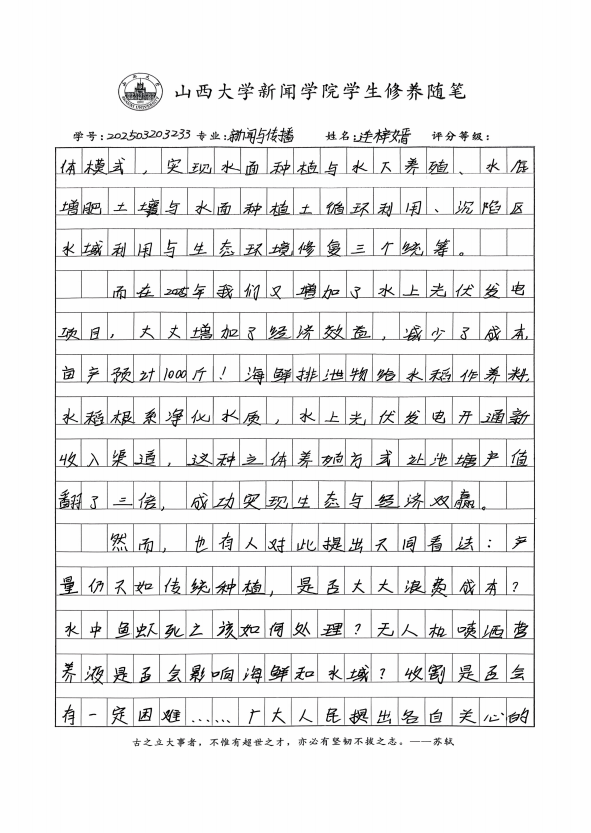 山西大学新闻学院学生修养随笔
学号:202503203233 专业:新闻与传播 姓名:连梓婿 评分等级:
体模式，实现水面种植与水下养殖、水底
增肥土壤与水面种植土循环利用、沉陷区
水域利用与生态环境修复三个统筹。
而在2025年我们又增加了水上光伏发电
项目，大大增加了经济效益，减少了成本，
亩产预计1000斤！海鲜排泄物给水稻作养料，
水稻根系净化水质，水上光伏发电开通新
收入渠道，这种立体养殖方式让池塘产值
翻了三倍，成功实现生态与经济双赢。
然而，也有人对此提出不同看法：产
量仍不如传统种植，是否大大浪费成本？
水中鱼虾死亡该如何处理？无人机喷洒营
养液是否会影响海鲜和水域？收割是否会
有一定困难……广大人民提出各自关心的
古之立大事者，不惟有超世之才，亦必有坚韧不拔之志。——苏轼